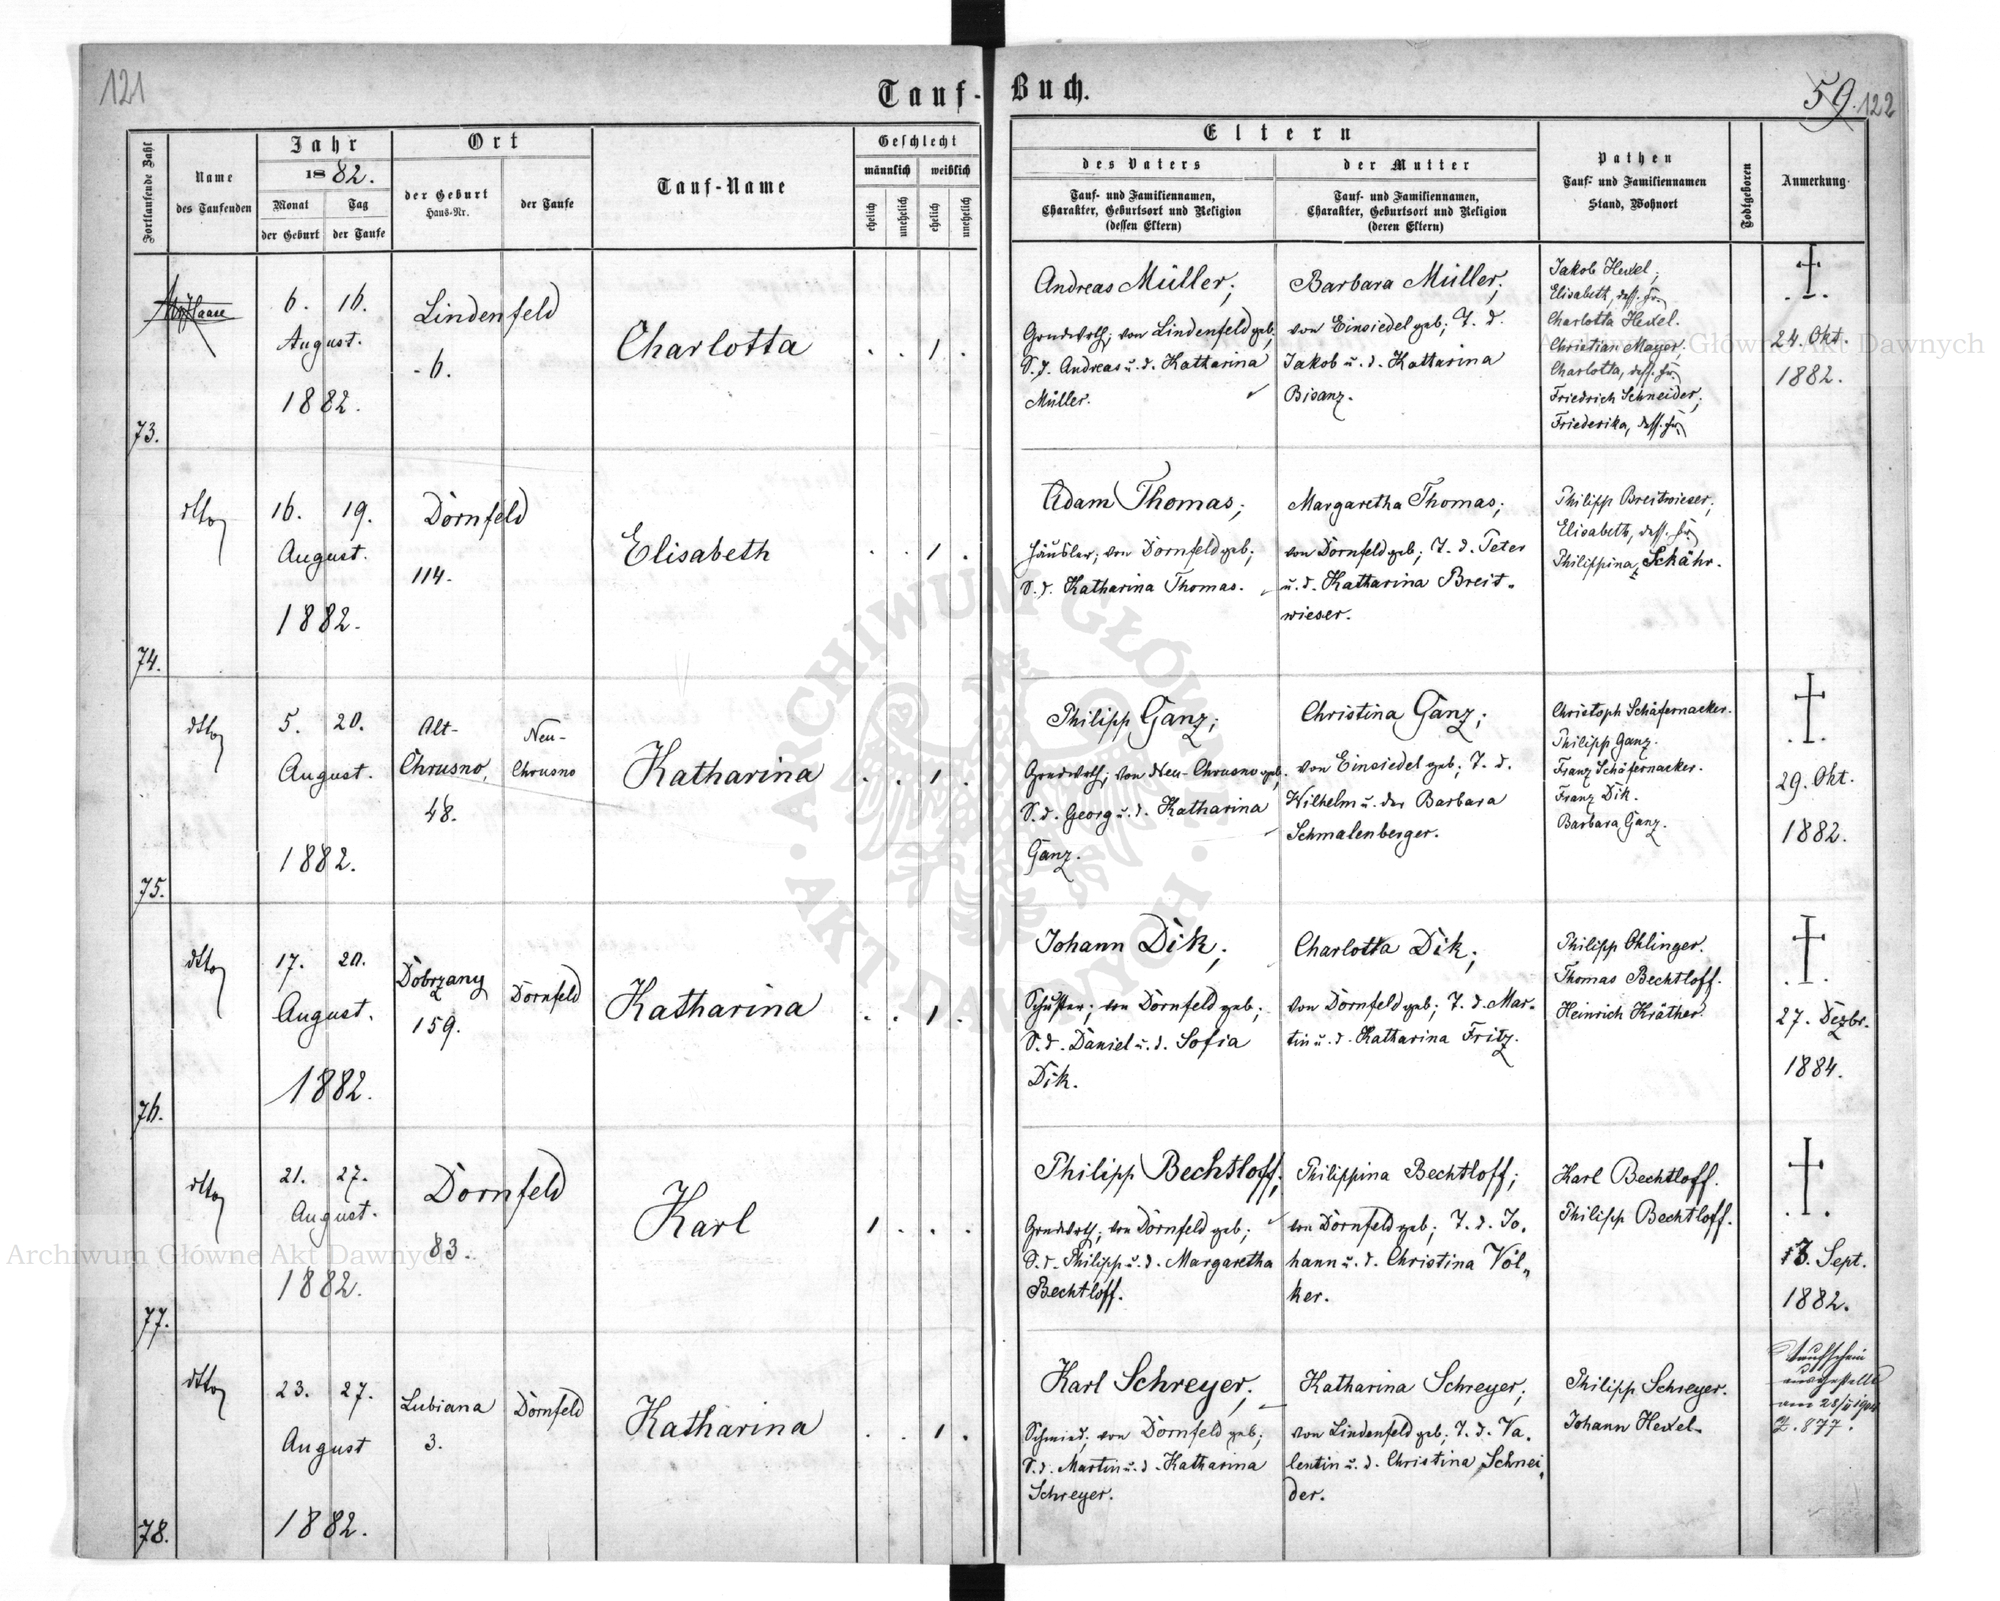 121
Tauf-Buch.
59. 122
Fortlaufende Zahl
Name
des Taufenden
Jahr
1882.
Monat
Tag
der Geburt
der Taufe
Ort
der Geburt
Haus-Nr.
der Taufe
Tauf-Name
Geschlecht
männlich
weiblich
ehelich
unehelich
ehelich
unehelich
Eltern
des Vaters
Tauf- und Familiennamen,
Charakter, Geburtsort und Religion
(dessen Eltern)
der Mutter
Tauf- und Familiennamen,
Charakter, Geburtsort und Religion
(deren Eltern)
Pathen
Tauf- und Familiennamen
Stand, Wohnort
Todtgeboren
Anmerkung
73.
6. 16.
August.
1882.
Lindenfeld
6.
Charlotta
. . 1 .
Andreas Müller;
Grndwrth; von Lindenfeld geb;
S. d. Andreas u. d. Katharina
Müller.
Barbara Müller;
von Einsiedel geb; T. d.
Jakob u. d. Katharina
Bisanz.
Jakob Hexel;
Elisabeth, dess. Fr.
Charlotta Hexel.
Christian Mayer;
Charlotta, dess. Fr.
Friedrich Schneider;
Friederika, dess. Fr.
24. Okt.
1882.
74.
dtto
16. 19.
August.
1882.
Dornfeld
114.
Elisabeth
. . 1 .
Adam Thomas;
Häusler; von Dornfeld geb;
S. d. Katharina Thomas.
Margaretha Thomas;
von Dornfeld geb; T. d. Peter
u. d. Katharina Breit-
wieser.
Philipp Breitwieser;
Elisabeth, dess. Fr.
Philippina Schähr.
75.
dtto
5. 20.
August.
1882.
Alt-
Chrusno,
48.
Neu-
Chrusno
Katharina
. . 1 .
Philipp Ganz;
Grndwrth; von Neu-Chrusno geb;
S. d. Georg u. d. Katharina
Ganz.
Christina Ganz;
von Einsiedel geb; T. d.
Wilhelm u. der Barbara
Schmalenberger.
Christoph Schäfernacker.
Philipp Ganz.
Franz Schäfernacker.
Franz Dik.
Barbara Ganz.
29. Okt.
1882.
76.
dtto
17. 20.
August.
1882.
Dobrzany
159.
Dornfeld
Katharina
. . 1 .
Johann Dik;
Schuster; von Dornfeld geb;
S. d. Daniel u. d. Sofia
Dik.
Charlotta Dik;
von Dornfeld geb; T. d. Mar-
tin u. d. Katharina Fritz.
Philipp Ohlinger.
Thomas Bechtloff.
Heinrich Kräther.
27. Dezbr.
1884.
77.
dtto
21. 27.
August.
1882.
Dornfeld
83.
Karl
1 . . .
Philipp Bechtloff;
Grndwrth; von Dornfeld geb;
S. d. Philipp u. d. Margaretha
Bechtloff.
Philippina Bechtloff;
von Dornfeld geb; T. d. Jo-
hann u. d. Christina Völ-
ker.
Karl Bechtloff.
Philipp Bechtloff.
Sept.
1882.
78.
dtto
23. 27.
August
1882.
Lubiana
3.
Dornfeld
Katharina
. . 1 .
Karl Schreyer;
Schmied; von Dornfeld geb;
S. d. Martin u. d. Katharina
Schreyer.
Katharina Schreyer;
von Lindenfeld geb; T. d. Va-
lentin u. d. Christina Schnei-
der.
Philipp Schreyer.
Johann Hexel.
Taufschein
ausgestellt
am
Z. 877.
Archiwum Główne Akt Dawnych
Archiwum Główne Akt Dawnych
ARCHIWUM GŁÓWNE AKT DAWNYCH